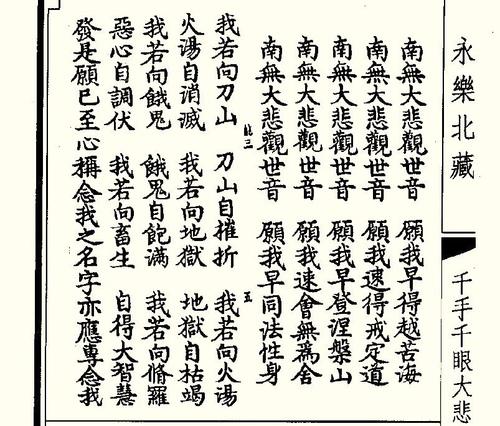 永樂北藏
千手千眼大悲
南無大悲觀世音 願我早得越苦海
南無大悲觀世音 願我速得戒定道
南無大悲觀世音 願我早登涅槃山
南無大悲觀世音 願我速會無為舍
南無大悲觀世音 願我早同法性身
我若向刀山 刀山自摧折 我若向火湯
火湯自消滅 我若向地獄 地獄自枯竭
我若向餓鬼 餓鬼自飽滿 我若向脩羅
惡心自調伏 我若向畜生 自得大智慧
發是願已至心稱念我之名字亦應專念我
三
五